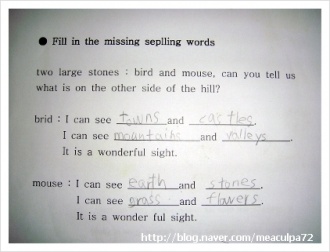 ● Fill in the missing seplling words
two large stones : bird and mouse, can you tell us
what is on the other side of the hill?
brid : I can see towns and castles.
I can see mountains and valleys.
It is a wonderful sight.
mouse : I can see earth and stones.
I can see grass and flowers.
It is a wonder ful sight.
http://blog.naver.com/meaculpa72